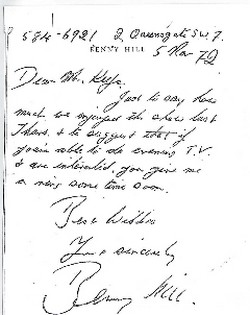 584-6921 2 Queensgate S.W.7.
BENNY HILL 5 Nov 72
Dear Mr. Kefs.
Just to say how
much we enjoyed the show last
Thurs. & to suggest that if
you're able to do evening T.V.
& are interested, you give me
a ring some time soon.
Best Wishes
Yours sincerely
Benny Hill.